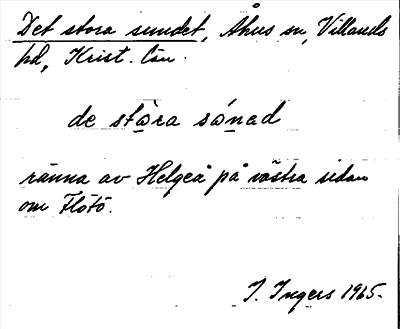 Det stora sundet, Åhus sn, Villands
hd, Krist. län.
de stɷra sɷ́nad
ränna av Helgeå på västra sidan
om Flötö.
I. Ingers 1965.